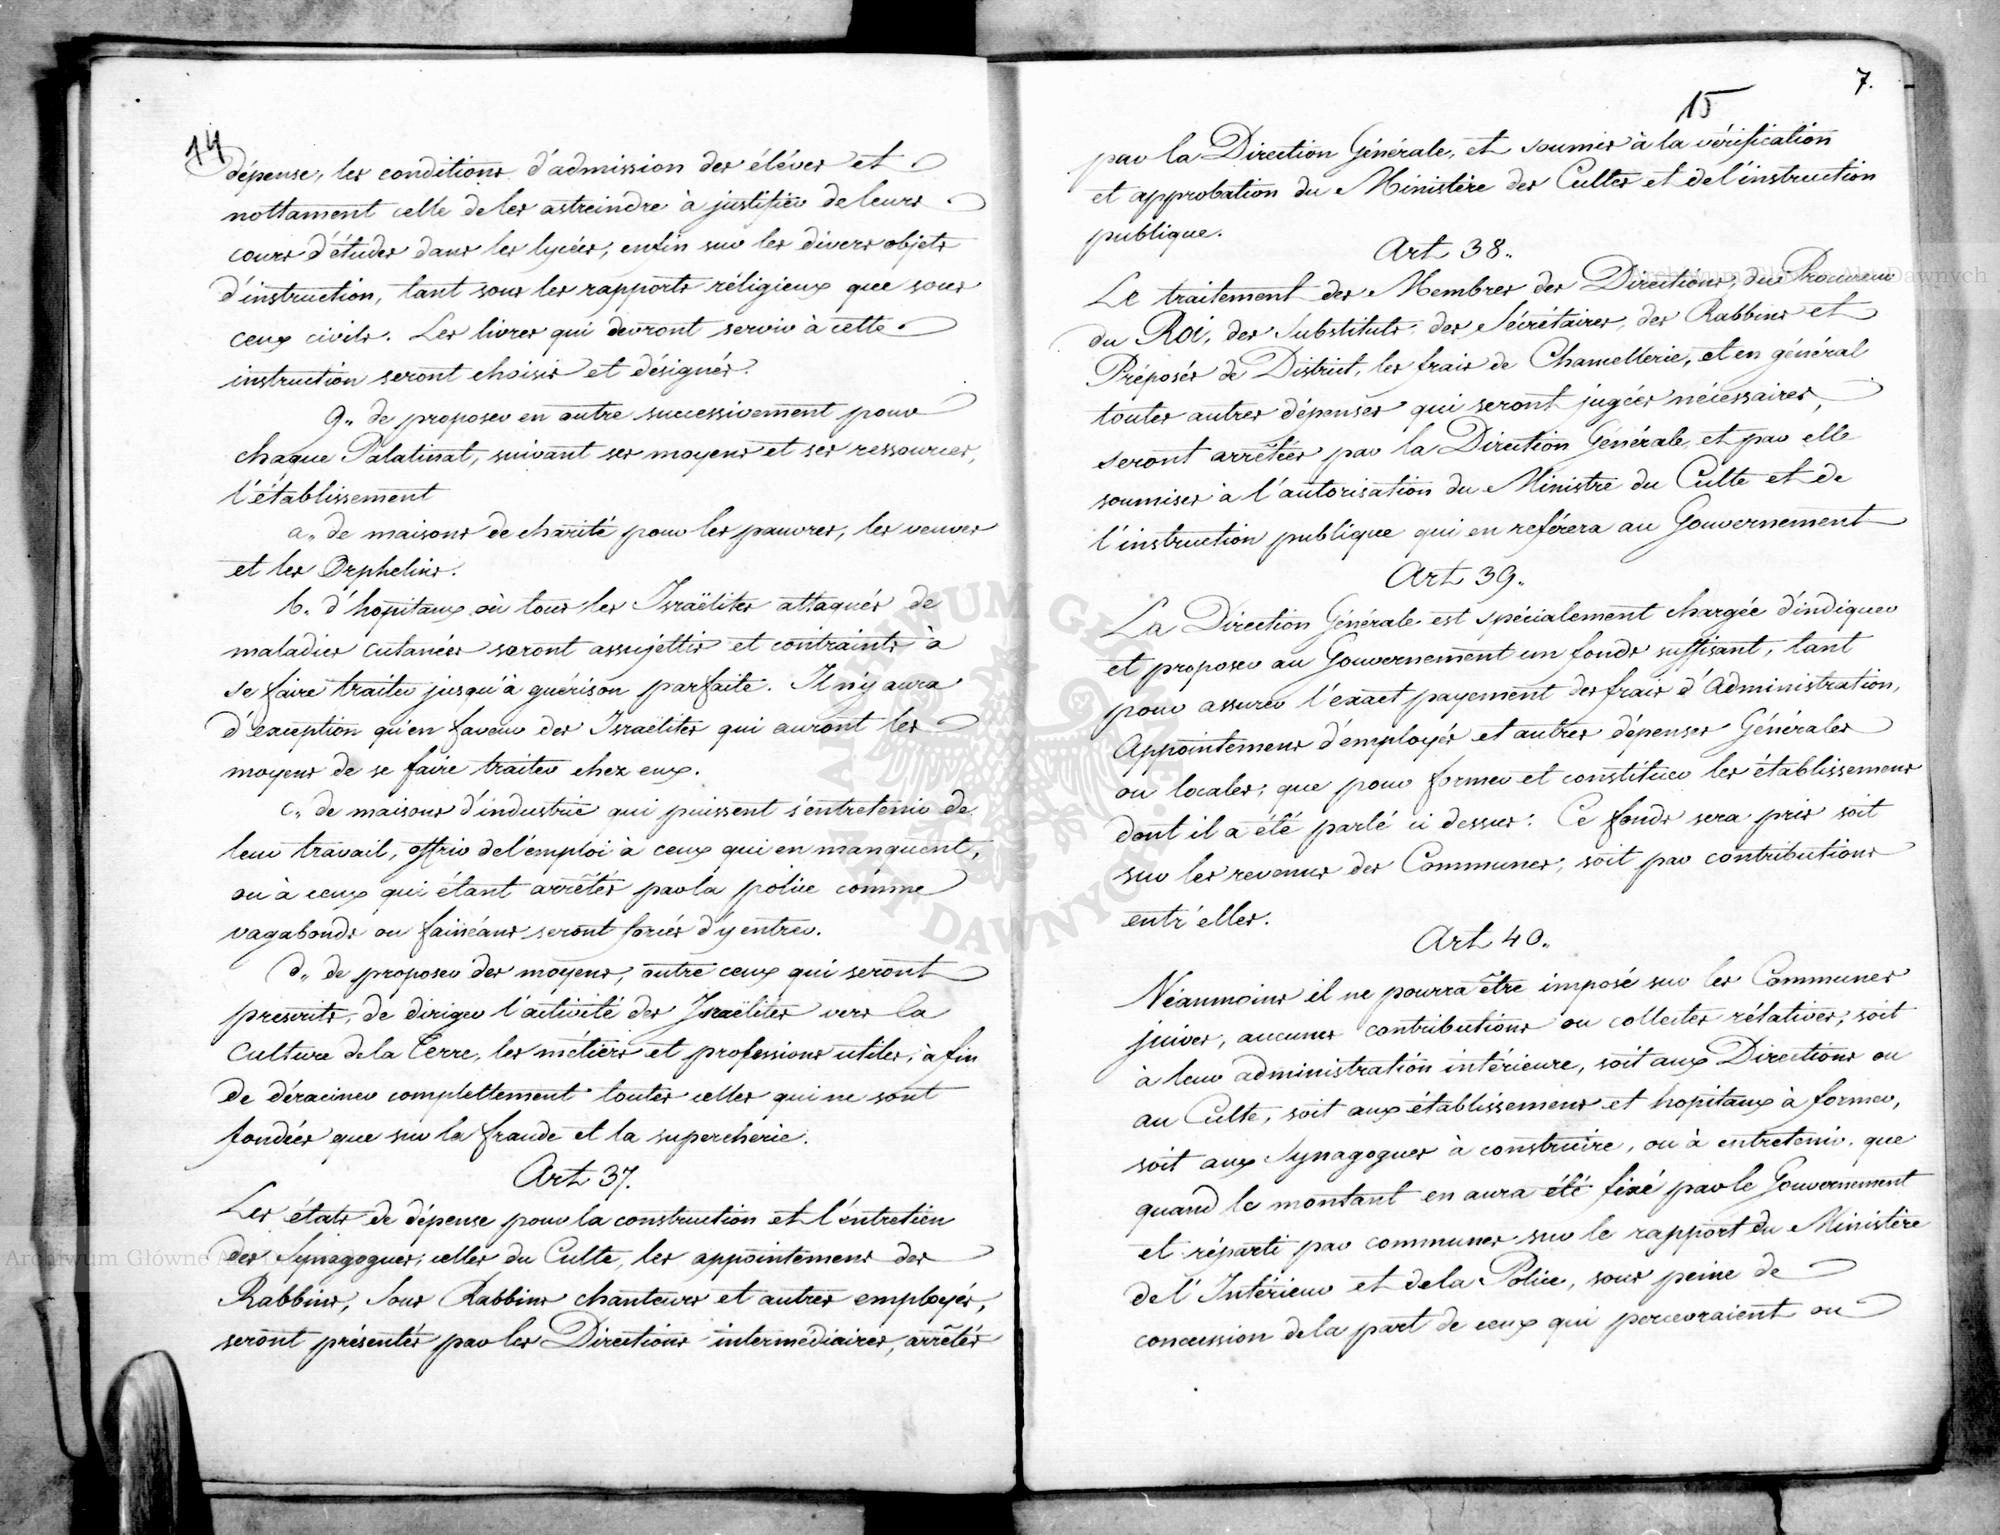 14
dépense, les conditions d'admission des éléves et
nottament celle de les astreindre à justifier de leurs
cours d'études dans les lycées; enfin sur les divers objets
d'instruction, tant sous les rapports réligieux que sous
ceux civils. Les livres qui devront servir à cette
instruction seront choisis et désignés.
9,, de proposer en outre successivement pour
chaque Palatinat, suivant ses moyens et ses ressources,
l'établissement
a,, de maisons de charité pour les pauvres, les veuves
et les Orphelins.
b,, d'hopitaux où tous les Israëlites attaqués de
maladies cutanées seront assujettis et contraints à
se faire traiter jusqu'à guérison parfaite. Il n'y aura
d'exception qu'en faveur des Israëlites qui auront les
moyens de se faire traiter chez eux.
c,, de maisons d'industrie qui puissent s'entretenir de
leur travail, offrir de l'emploi à ceux qui en manquent,
ou à ceux qui étant arrêtés par la police comme
vagabonds ou fainéans seront forcés d'y entrer.
d,, de proposer des moyens, outre ceux qui seront
prescrits, de diriger l'activité des Israëlites vers la
culture de la Terre, les métiers et professions utiles, à fin
de déraciner complettement toutes celles qui ne sont
fondées que sur la fraude et la supercherie.
Art 37.
Les états de dépense pour la construction et l'entretien
des Synagogues, celles du Culte, les appointemens des
Rabbins, Sous Rabbins chanteurs et autres employés,
seront présentés par les Directions intermédiaires, arrêtés
7.
15
par la Direction Générale, et soumis à la vérification
et approbation du Ministère des Cultes et de l'instruction
publique.
Art 38.,
Le traitement des Membres des Directions, du Procureur
du Roi, des Substituts, des Sécrétaires, des Rabbins et
Préposés de District, les frais de Chancellerie, et en général
toutes autres dépenses qui seront jugées nécessaires,
seront arrêtées par la Direction Générale, et par elle
soumises à l'autorisation du Ministre du Culte et de
l'instruction publique qui en reférera au Gouvernement
Art 39.,
La Direction Générale est spécialement chargée d'indiquer
et proposer au Gouvernement un fonds suffisant, tant
pour assurer l'exact payement des frais d'Administration,
Appointemens d'employés et autres dépenses Générales
ou locales; que pour former et constituer les établissemens
dont il a été parlé ci dessus. Ce fonds sera pris soit
sur les revenus des Communes; soit par contributions
entr'elles.
Art 40.,
Néanmoins il ne pourra être imposé sur les Communes
juives, aucunes contributions ou collectes rélatives; soit
à leur administration intérieure, soit aux Directions ou
au Culte, soit aux établissemens et hopitaux à former,
soit aux Synagogues à construire, ou à entretenir, que
quand le montant en aura été fixé par le Gouvernement
et réparti par communes sur le rapport du Ministère
de l'Intérieur et de la Police, sous peine de
concussion de la part de ceux qui percevraient ou
Archiwum Główne Akt Dawnych